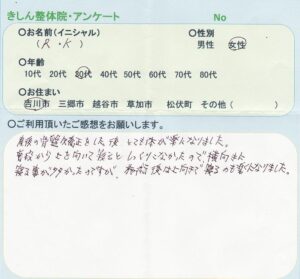 きしん整体院・アンケート No
○お名前(イニシャル) ○性別
(R.K) 男性 女性
○年齢
10代 20代 30代 40代 50代 60代 70代 80代
○お住まい
吉川市 三郷市 越谷市 草加市 松伏町 その他( )
○ご利用頂いたご感想をお願いします。
産後の骨盤矯正をした後 とても体が楽になりました。
高校から上を向いて寝ると しっくりこなかったので 横向きに
寝る事が多かったのですが、施術後は上向きで寝るのも楽になりました。